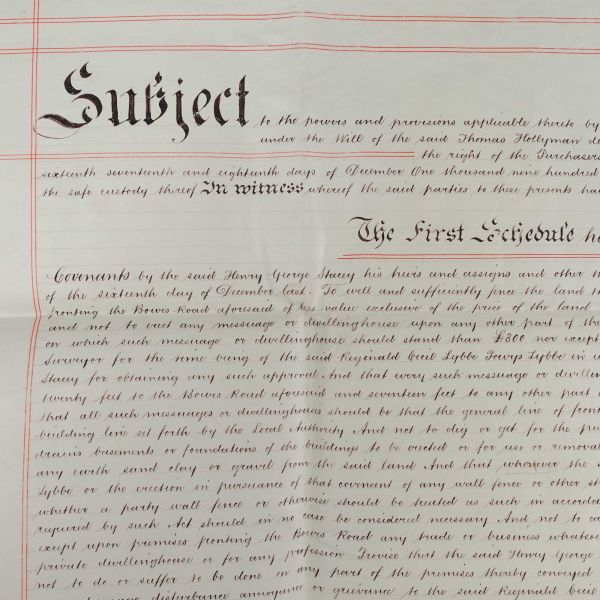 Subject to the powers and provisions applicable thereto by
under the Will of the said Thomas Hollyman de
the right of the Purchasers
sixteenth seventeenth and eighteenth days of December One thousand nine hundred
the safe custody thereof In witness whereof the said parties to these presents ha
The First Schedule he
Covenants by the said Henry George Stacey his heirs and assigns and other th
of the sixteenth day of December last. To well and sufficiently fence the land th
fronting the Bowes Road aforesaid of less value exclusive of the price of the land
and not to erect any messuage or dwellinghouse upon any other part of the
on which such messuage or dwellinghouse should stand than £300 nor except
Surveyor for the time being of the said Reginald Cecil Lybbe Powys Lybbe in w
Stacey for obtaining any such approval And that every such messuage or dwellin
twenty feet to the Bowes Road aforesaid and seventeen feet to any other part
that all such messuages or dwellinghouses should be that the general line of front
building line set forth by the Local Authority And not to dig or get for the pu
drains basements or foundations of the buildings to be erected or for use or removal
any earth sand clay or gravel from the said land And that whenever the
Lybbe or the erection in pursuance of that covenant of any wall fence or other st
whether a party wall fence or otherwise should be treated as such in accorda
required by such Act should in no case be considered necessary And not to ca
except upon premises fronting the Bowes Road any trade or business whatso
private dwellinghouse or for any profession Provise that the said Henry George
not to do or suffer to be done on any part of the premises thereby conveyed
disturbance annoyance or grievance to the said Reginald Cecil